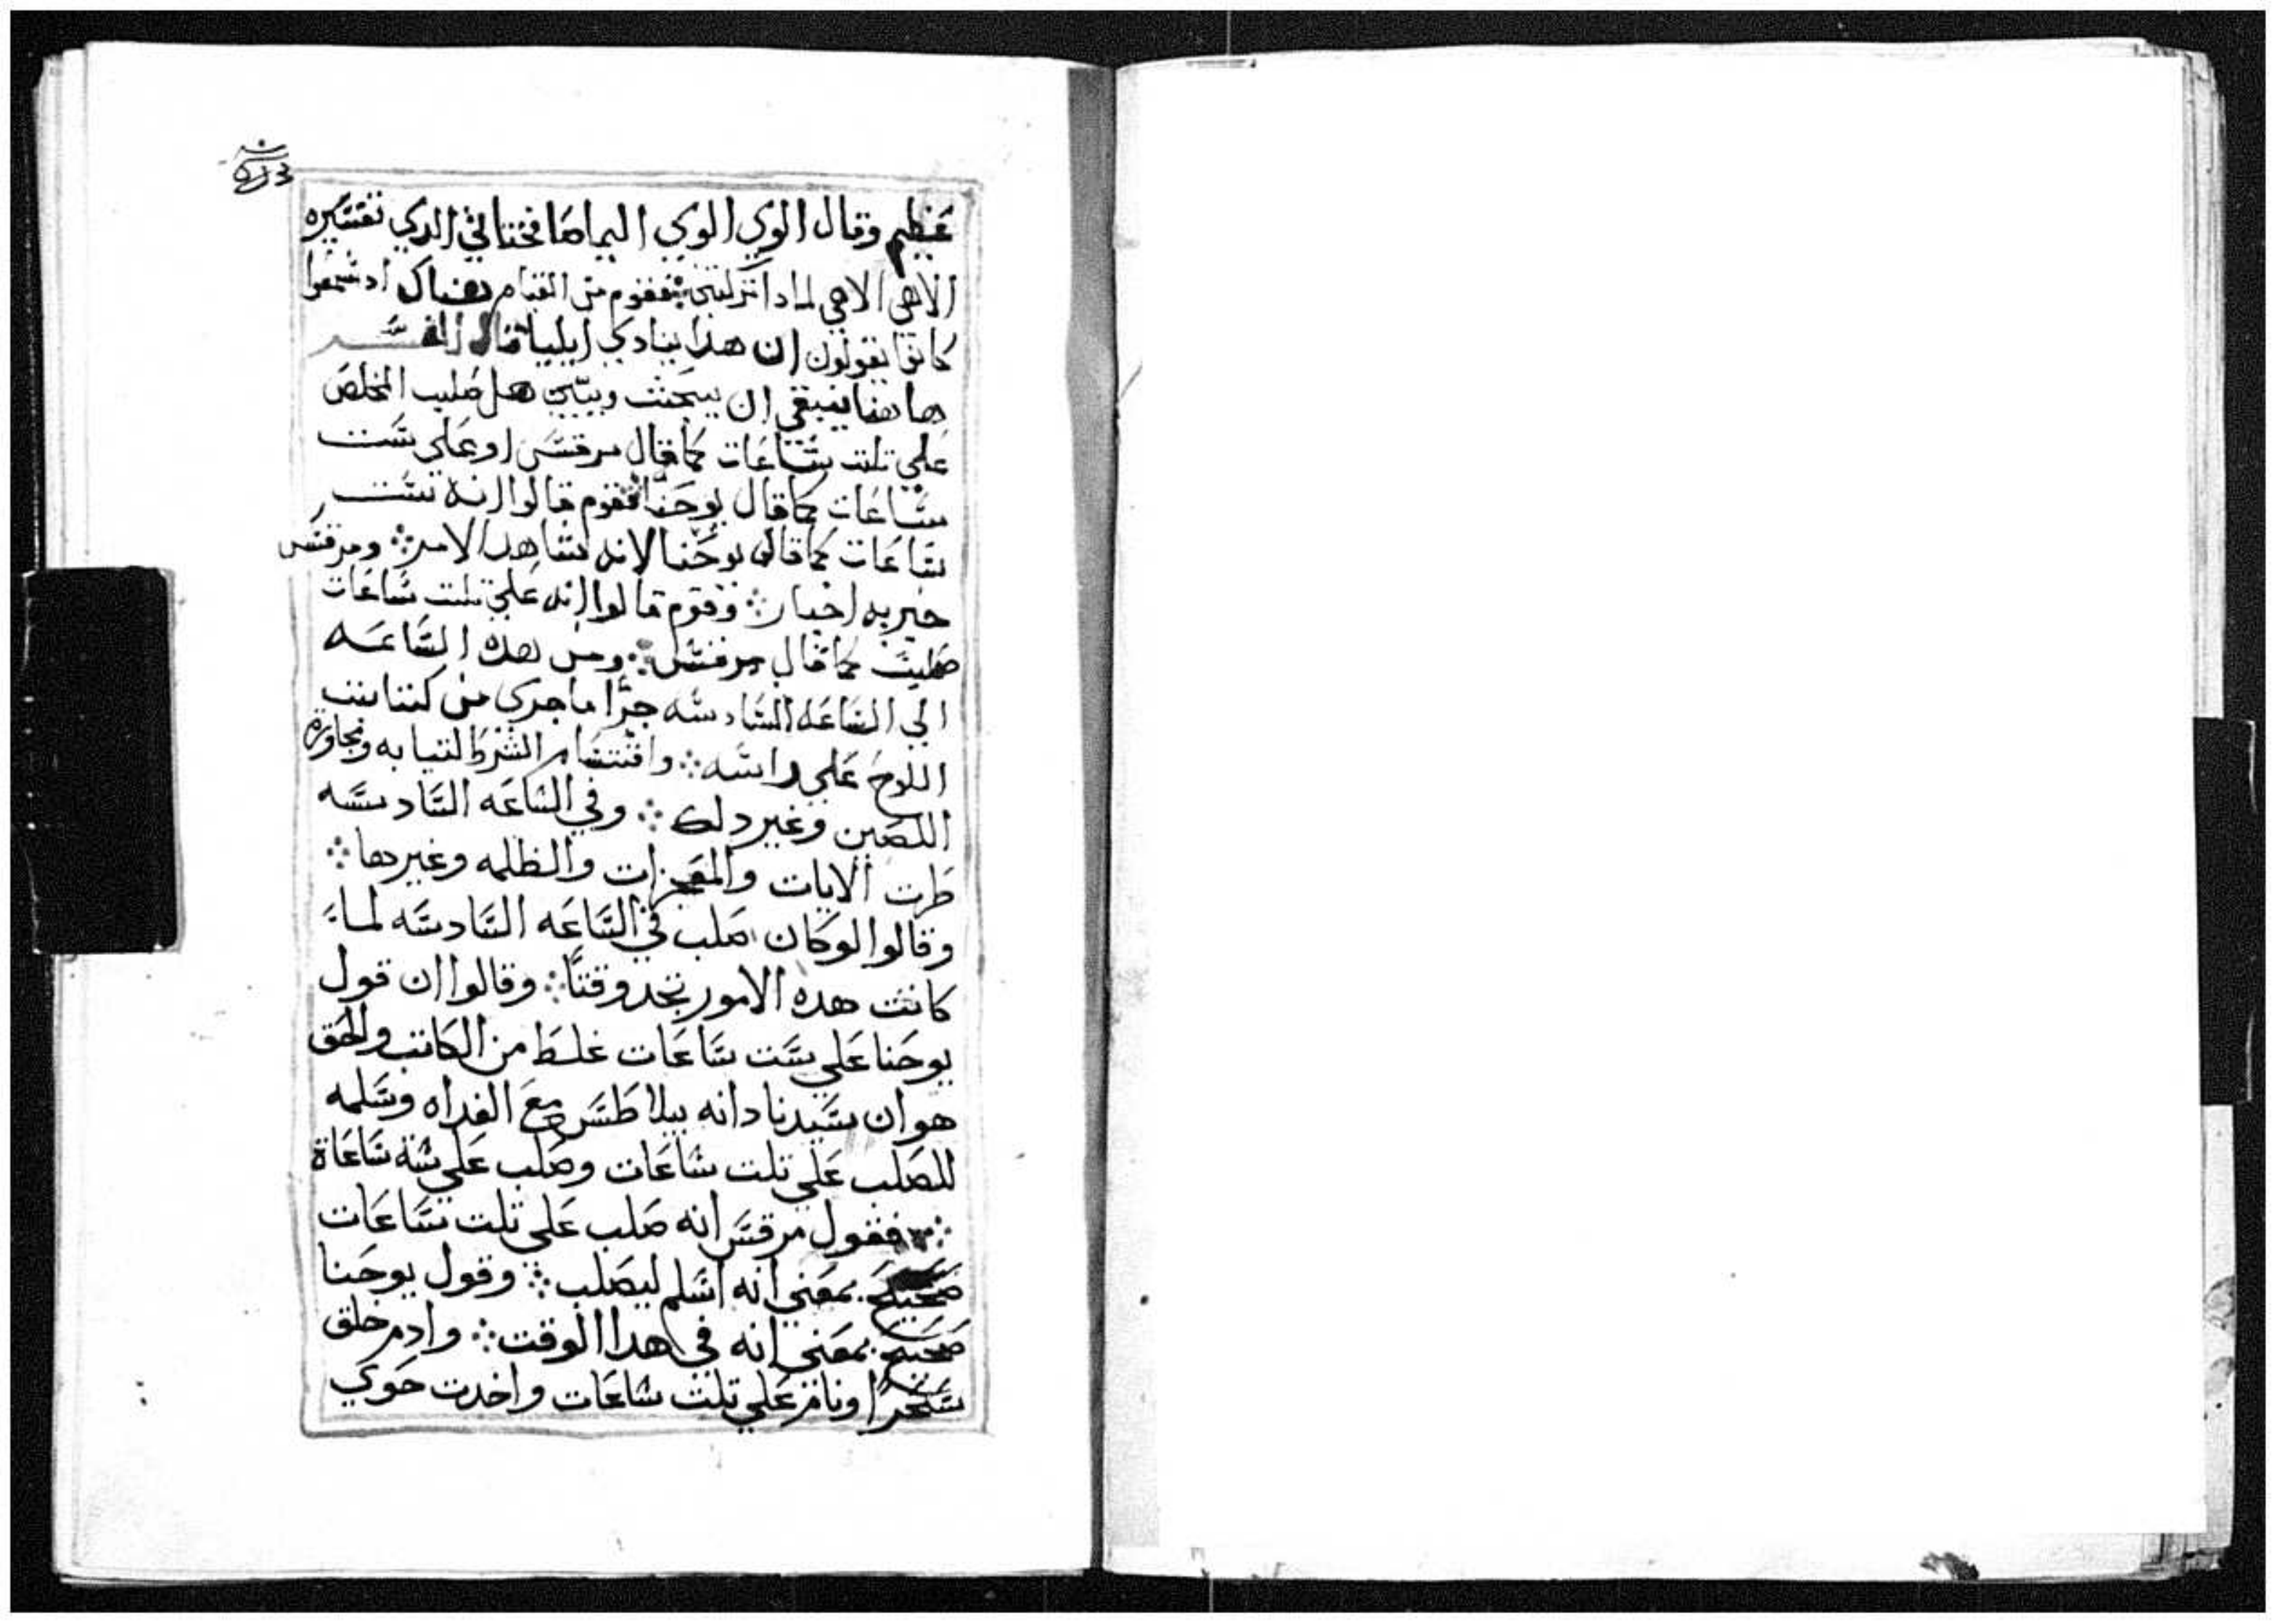 عظيم وقال الوي الوي اليماصافختاني الدي تفسيره
الاهي الاهي لمادا تركتني فقوم من القيام هناك اد سمعوا
كانوا يقولون ان هدا ينادي ايليا قال المفسر
هاهنا ينبغي ان يبحث ويبين هل صلب المخلص
علي تلت ساعات كما قال مرقس او علي ست
ساعات كما قال يوحنا فقوم قالوا انه ست
ساعات كما قال يوحنا لانه شاهد الامر ومرقس
خبر به اخبار وقوم قالوا انه علي تلت ساعات
صليب كما قال مرقس ومن هده الساعه
الي الساعه السادسه جرا ما جري من كتابت
اللوح علي راسه واقتسام الشرط لتيابه ومجاورة
اللصين وغير دلك وفي الساعه السادسه
طرت الايات والمعجزات والظلمه وغيرها
وقالوا لو كان صلب في الساعه السادسه لماء
كانت هده الامور تجد وقتا وقالوا ان قول
يوحنا علي ست ساعات غلط من الكاتب والحق
هو ان سيدنا دانه بيلاطس مع الغداه وسلمه
للصلب علي تلت ساعات وصلب علي ستة ساعاة
فقول مرقس انه صلب علي تلت ساعات
صحيح بمعني انه اسلم ليصلب وقول يوحنا
صحيح بمعني انه في هدا الوقت وادم خلق
سحرا ونام علي تلت ساعات واخدت حوي